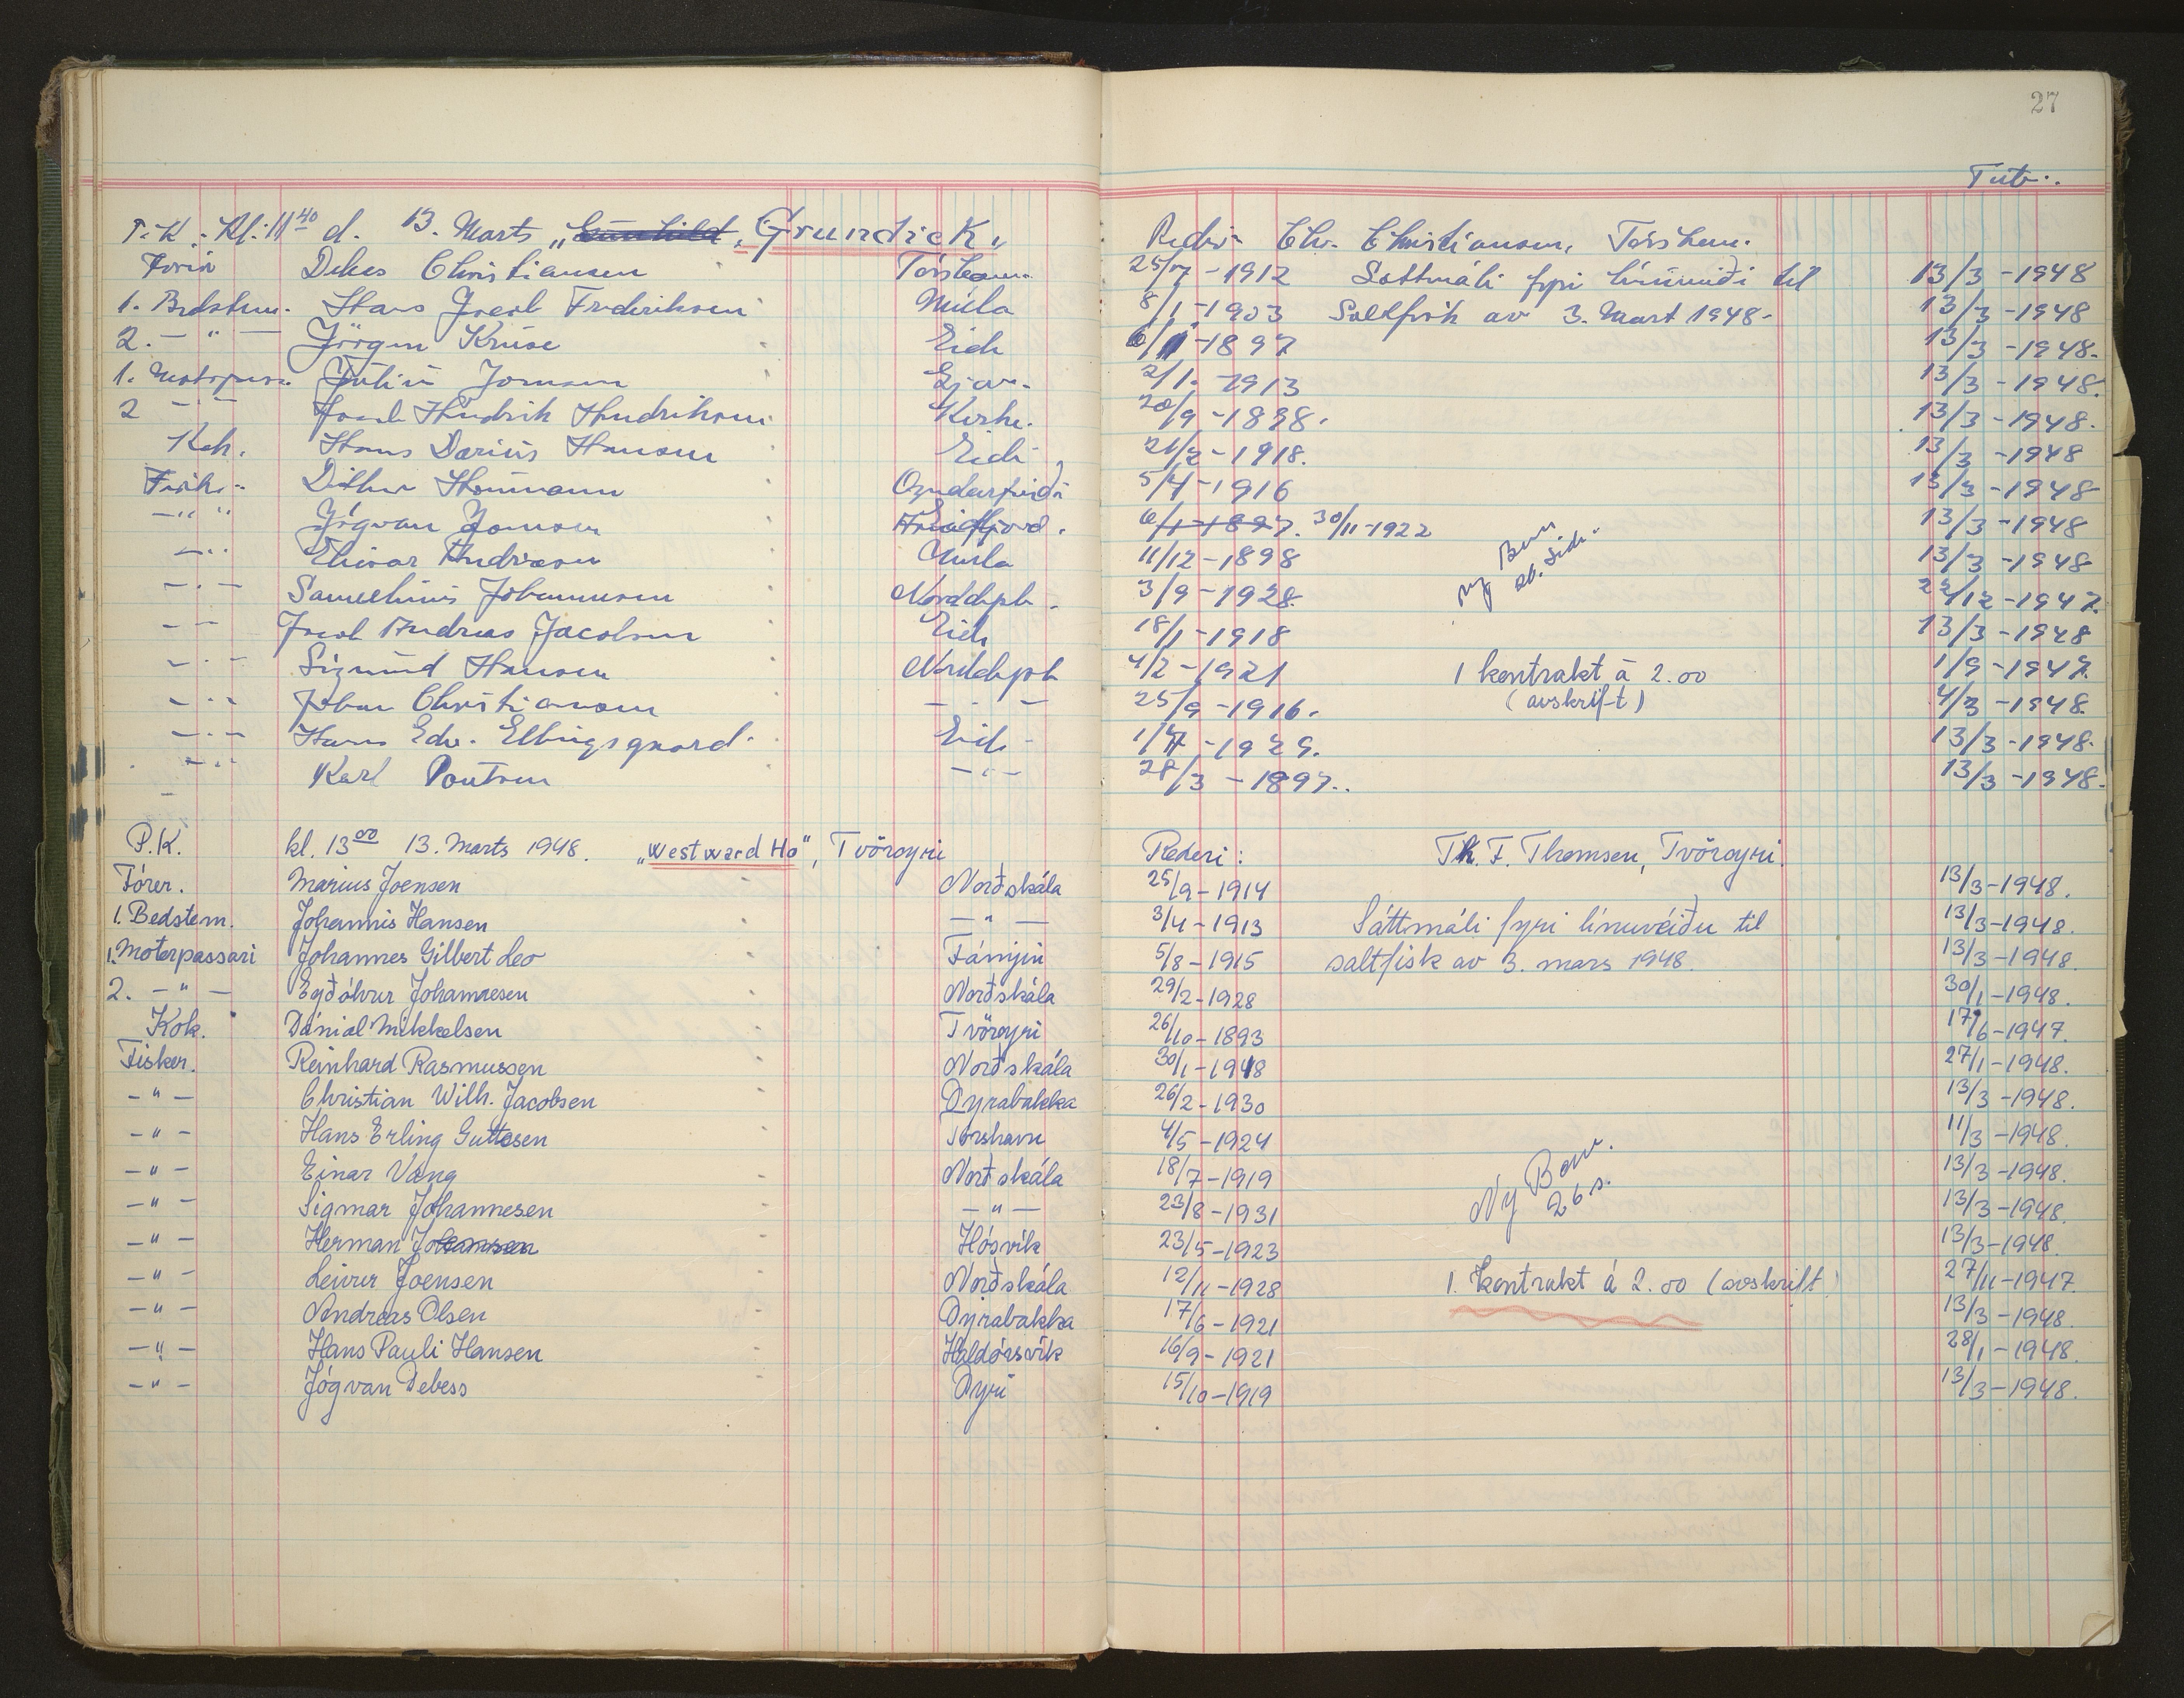 27
P.K. Kl. 11 40 d. 13. Marts „Gunhild, Grundick" Rederi Chr. Christiansen, Tórshavn.
Christiansen Tórshavn 25/7-1912 Sáttmáli fyri línuveiði til 13/3-1948
1. Bedstem. Hans Jacob Frederiksen Múla 8/1-1903 Saltfisk av 3. Mart 1948- 13/3-1948
2. - " - Jörgen Kruse Eide -1897 13/3-1948.
1. Motorpass. Júlia Joensen 2/1-1913 13/3-1948.
2 - " - Jacob Hendrik Hendriksen 20/9-1898. 13/3-1948.
Kok. Hans Darius Hansen Eide 21/2-1918. 13/3-1948
Fisker Hermann 5/4-1916 13/3-1948
- " - Jógvan Joensen 6/1-1897. 30/11-1922 13/3-1948
- " - Andreasen Múla 11/12-1898 13/3-1948
- " - Johannesen 3/9-1928. 22/12-1947.
Ny Bem
26. Side.
- " - Jacob Andreas Jacobsen Eide 18/1-1918 13/3-1948
- " - Sigmund Hansen Norddepil 4/2-1921 1 kontrakt à 2.00 1/9-1947.
(avskrift)
- " - Johan Christiansen - " - 25/9-1916. 4/3-1948.
- " - Hans Edv. Ellingsgaard. Eide 1/7-1929. 13/3-1948.
- " - Karl Poulsen - " - 28/3-1897. 13/3-1948.
P.K. kl. 13 00 13. Marts 1948. „Westward Ho", Tvöroyri Rederi: Th. F. Thomsen, Tvöroyri.
Förer. Marius Joensen Norðskála 25/9-1914 13/3-1948.
1. Bedstem. Johannis Hansen - " - 3/4-1913 Sáttmáli fyri línuveiðu til 13/3-1948.
1. Motorpassari Johannes Gilbert Leo Fámjin 5/8-1915 saltfisk av 3. mars 1948. 13/3-1948.
2. - " - Eyðólvur Johannesen Norðskála 29/2-1928 30/1-1948.
Kok. Dánial Mikkelsen Tvöroyri 26/10-1893 17/6-1947.
Fisker. Reinhard Rasmussen Norðskála 30/1-1918 27/1-1948.
- " - Christian Wilh. Jacobsen Oyrabakka 26/2-1930 13/3-1948.
- " - Hans Erling Guttesen Tórshavn 4/5-1924 11/3-1948.
- " - Einar Vang Norðskála 18/7-1919 13/3-1948.
- " - Sigmar Johannesen - " - 23/8-1931 13/3-1948.
Ny Bem.
26 s.
- " - Herman Johannesen Hósvík 23/5-1923 13/3-1948.
- " - Leivur Joensen Norðskála 12/11-1928 1. Kontrakt á 2.00 (avskrift) 27/11-1947.
- " - Andreas Olsen Oyrabakka 17/6-1921 13/3-1948.
- " - Hans Pauli Hansen Haldórsvík 16/9-1921 28/1-1948.
- " - Jógvan Debess Oyri 15/10-1919 13/3-1948.